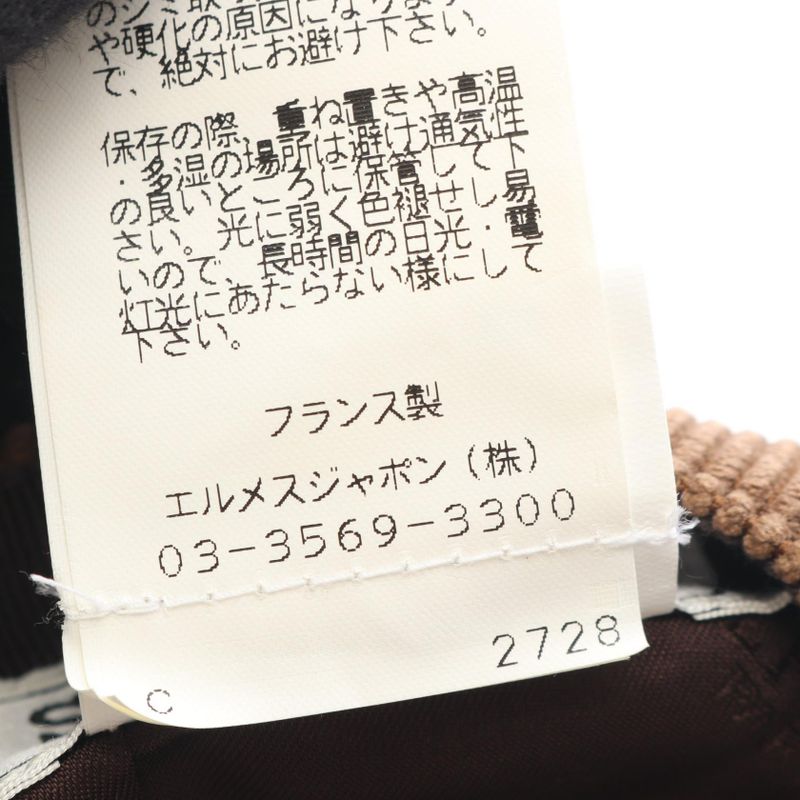 のシミ取りの原因になります
や硬化の原因になります
で、絶対にお避け下さい。
保存の際、重ね置きや高温
・多湿の場所は避け通気性
の良いところに保管して下
さい。光に弱く褪色し易
いので、長時間の日光・電
灯光にあたらない様にして
下さい。
フランス製
エルメスジャポン(株)
03-3569-3300
2728
C